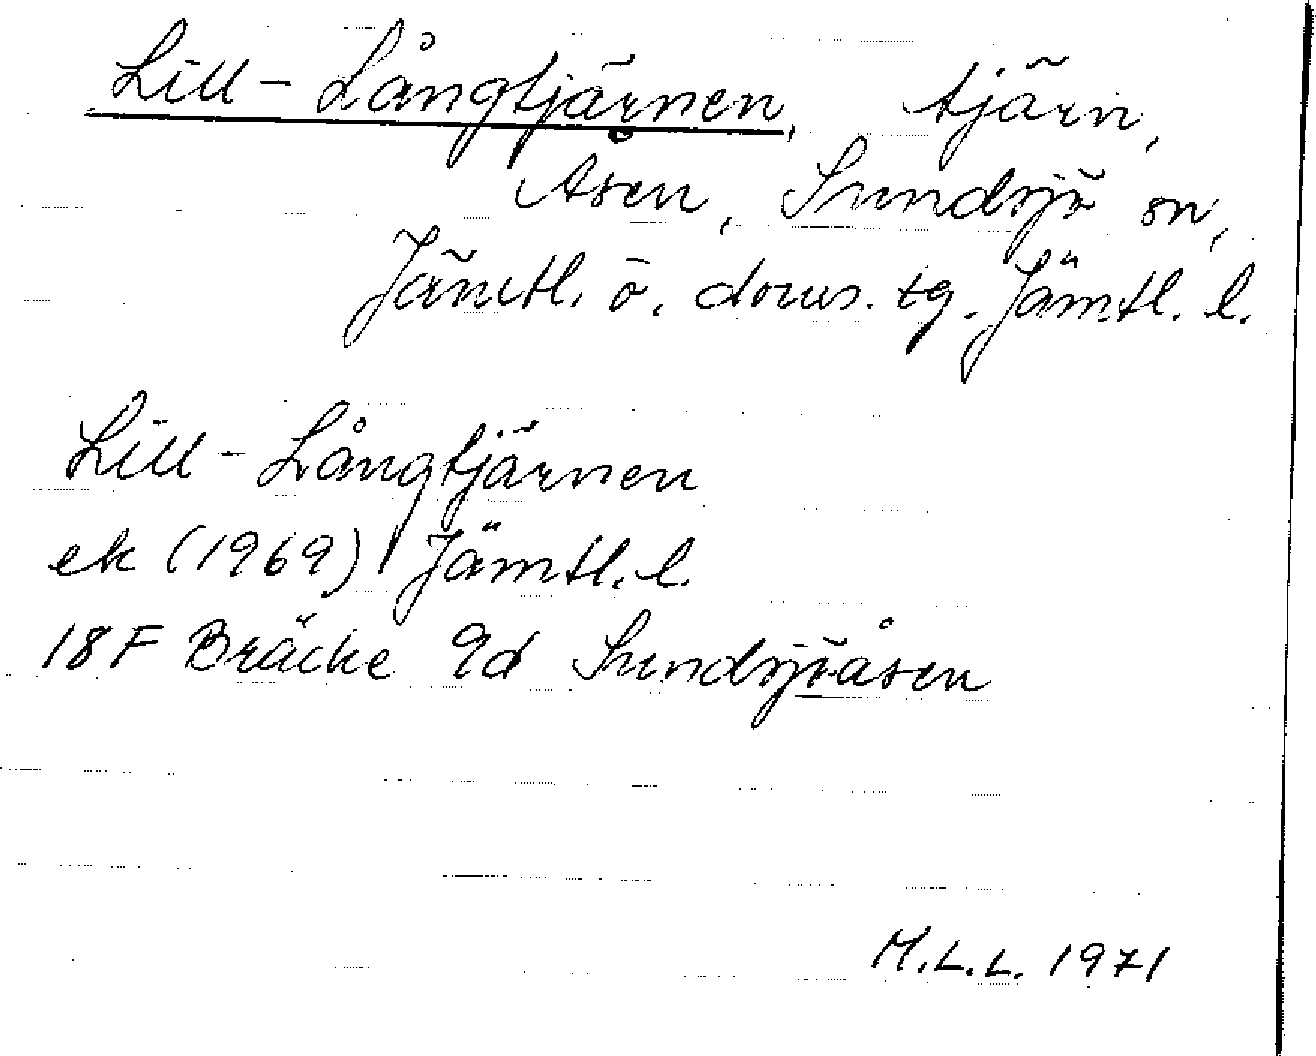 Lill-Långtjärnen, tjärn,
Åsen, Sundsjö sn,
Jämtl. ö. doms. tg. Jämtl. l.
Lill-Långtjärnen
ek (1969) Jämtl. l.
18F Bräcke 9d Sundsjöåsen
M.L.L. 1971